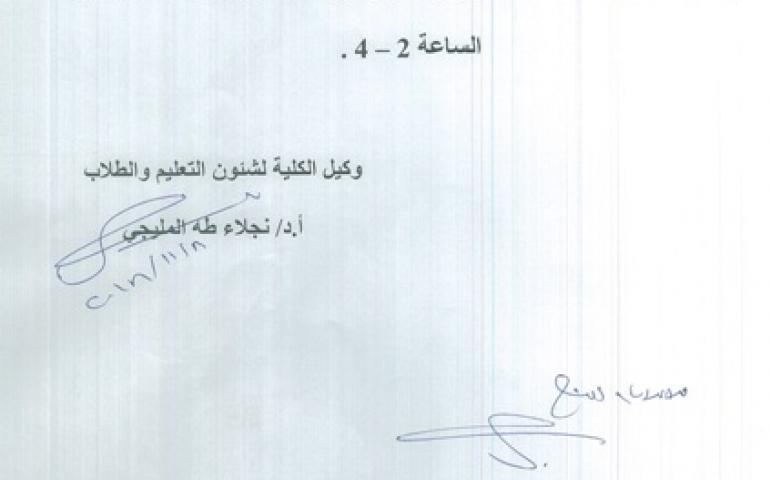 الساعة 2 – 4 .
وكيل الكلية لشئون التعليم والطلاب
أ.د/ نجلاء طه المليجي